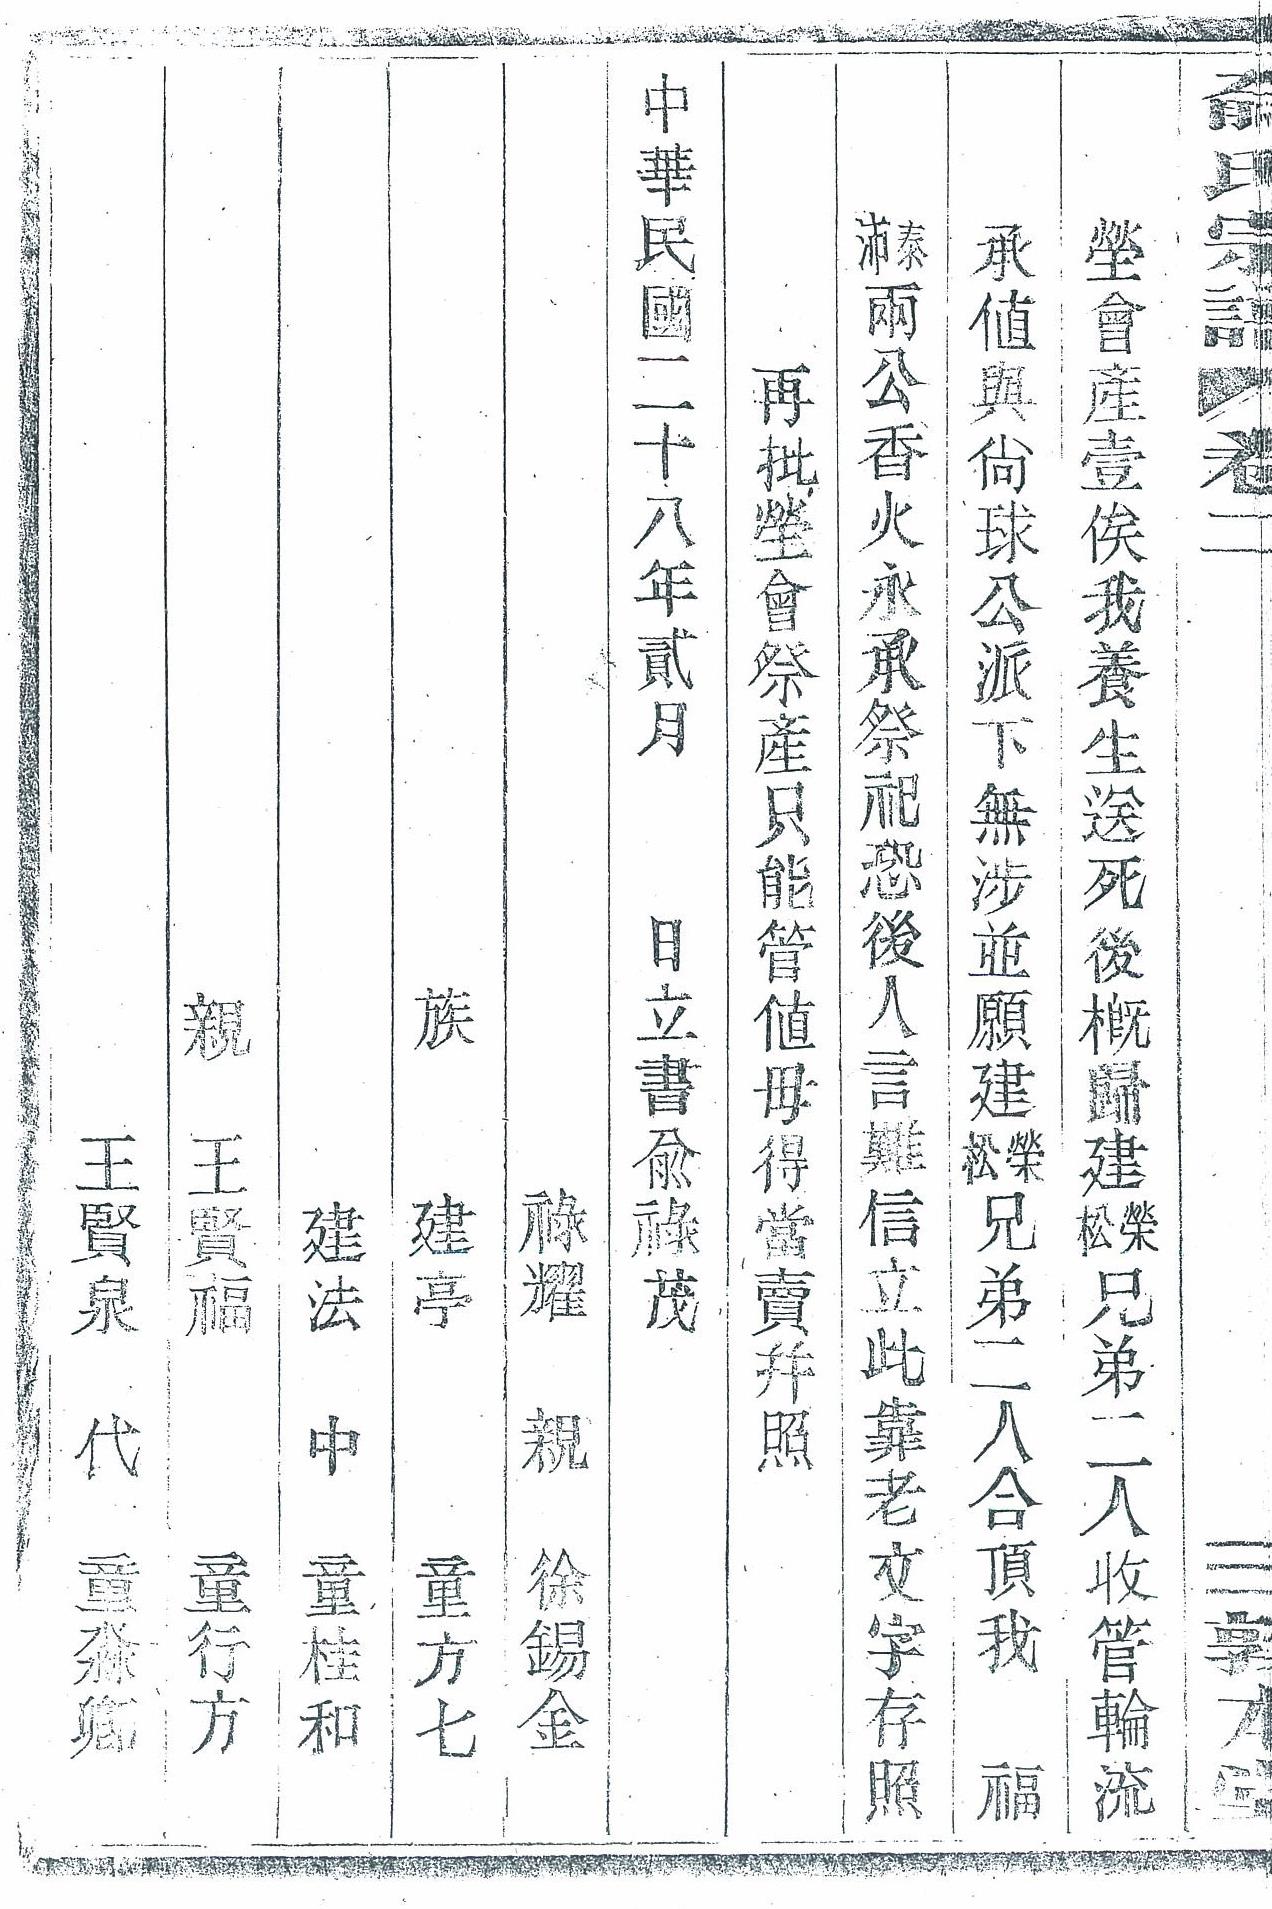 俞氏宗譜 卷二 三 敦本堂
塋會產壹俟我養生送死後概歸建榮松兄弟二人收管輪流
承値與尙球公派下無涉並願建榮松兄弟二人合頂我 福
泰沛兩公香火永承祭祀恐後人言難信立此靠老文字存照
再批塋會祭產只能管値毋得當賣幷照
中華民國二十八年貳月 日立書俞祿茂
祿耀 親 徐錫金
族 建亭 童方七
建法 中 童桂和
親 王賢福 童行方
王賢泉 代 童